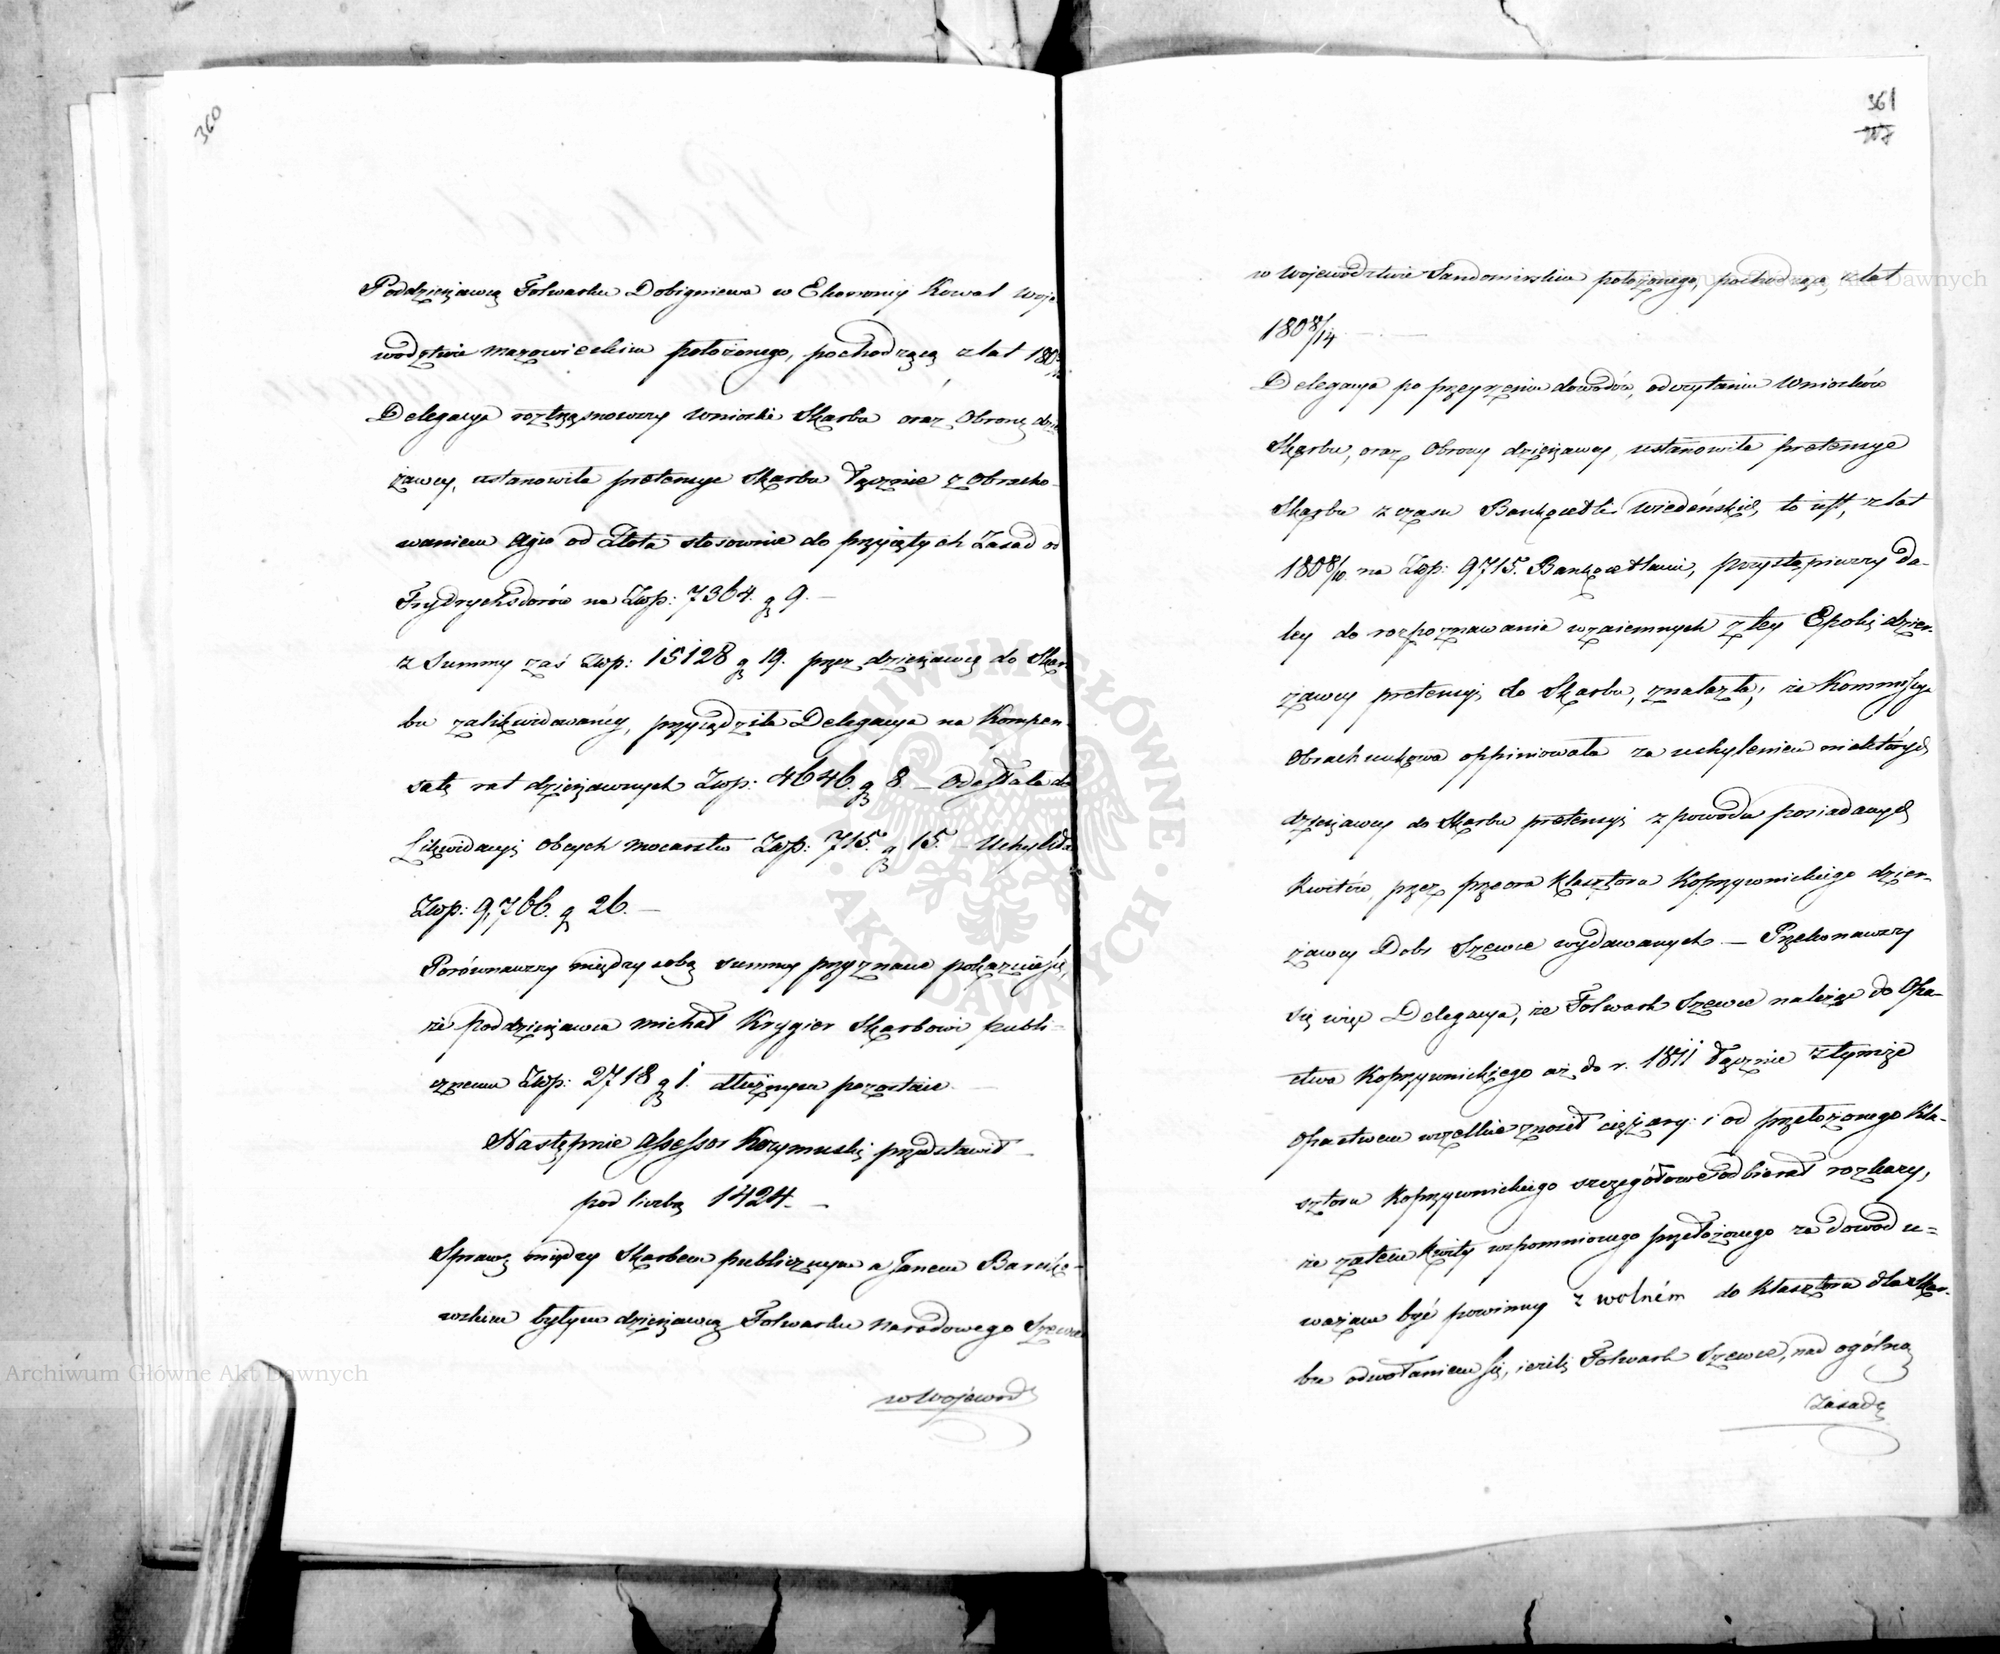 360
Poddzierżawcą Folwarku Dobigniewa w Ekonomij Kowal Woje-
wodztwie Mazowieckim położonego, pochodzącą z lat
Delegacya roztrząsnowszy wnioski Skarbu oraz Obronę dzier
żawcy, ustanowiła pretensye Skarbu łącznie z Obracho-
waniem Agio od Złota stosownie do przyiętych Zasad od
Frydrychsdorów na Złp: 7364. g 9. —
z Summy zaś Złp: 15128 g 19. przez dzierżawcę do Skar-
bu zalikwidowanéy, przysądziła Delegacya na Kompen-
satę rat dzierżawnych Złp: 4646. g 8. — Odesłała do
Likwidacyi Obcych Mocarstw Złp: 715. g 15. — Uchyliła
Złp: 9,766. g 26. —
Porównawszy między sobą summy przyznane pokazuie się,
że poddzierżawca Michał Krygier Skarbowi publi-
cznemu Złp: 2718 g 1. dłużnym pozostaie. —
Następnie Assessor Korzymuski przedstawił
pod liczbą 1424. —
Sprawę między Skarbem publicznym a Janem
wskim byłym dzierżawcą Folwarku narodowego Szewce
w Wojewod
361
w Wojewodztwie Sandomirskim położonego, pochodzącą z lat
1808/14. —
Delegacya po przeyrzeniu dowodów, odczytaniu Wniosków
Skarbu, oraz Obrony dzierżawcy, ustanowiła pretensye
Skarbu z czasu Bankocetli Wiedeńskich, to iest, z lat
1808/10. na Złp: 9715. Bankocetlami, przystąpiwszy da-
ley do rozpoznawania wzaiemnych z tey Epoki dzier-
żawcy pretensyi do Skarbu, znalazła; że Kommissya
Obrachunkowa oppiniowała za uchyleniem niektórych
dzierżawcy do Skarbu pretensyi z powodu posiadanych
Kwitów, przez przeora Klasztoru Koprzywnickiego dzier-
żawcy Dobr Szewce wydawanych. — Przekonawszy
się więc Delegacya, że Folwark Szewce należąc do Opa-
ctwa Koprzywnickiego aż do r. 1811 łącznie z tymże
Opactwem wszelkie znosił ciężary i od przełożonego Kla-
sztoru Koprzywnickiego szczegółowe odbierał rozkazy,
że zatem kwity wspomnionego przełożonego za dowod u-
ważane być powinny z wolném do Klasztoru dla Skar-
bu odwołaniem się, ieżeli Folwark Szewce, nad ogólną
Zasadę
Archiwum Główne Akt Dawnych
Archiwum Główne Akt Dawnych
ARCHIWUM GŁÓWNE · AKT DAWNYCH ·